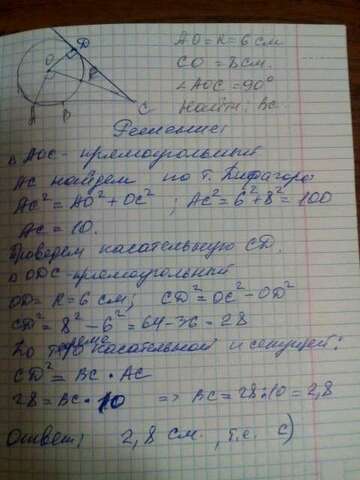 AO = R = 6 см
CO = 8 см.
∠AOC = 90°
Найти: BC.
O
D
R
A
B
C
Решение:
△ AOC - прямоугольный
AC найдем по т. Пифагора
AC² = AO² + OC² ; AC² = 6² + 8² = 100
AC = 10.
Проведем касательную CD.
△ ODC - прямоугольный
OD = R = 6 см; CD² = OC² - OD²
CD² = 8² - 6² = 64 - 36 = 28
По касательной и секущей:
CD² = BC · AC
28 = BC · 10 => BC = 28:10 = 2,8
Ответ: 2,8 см., т.е. C)